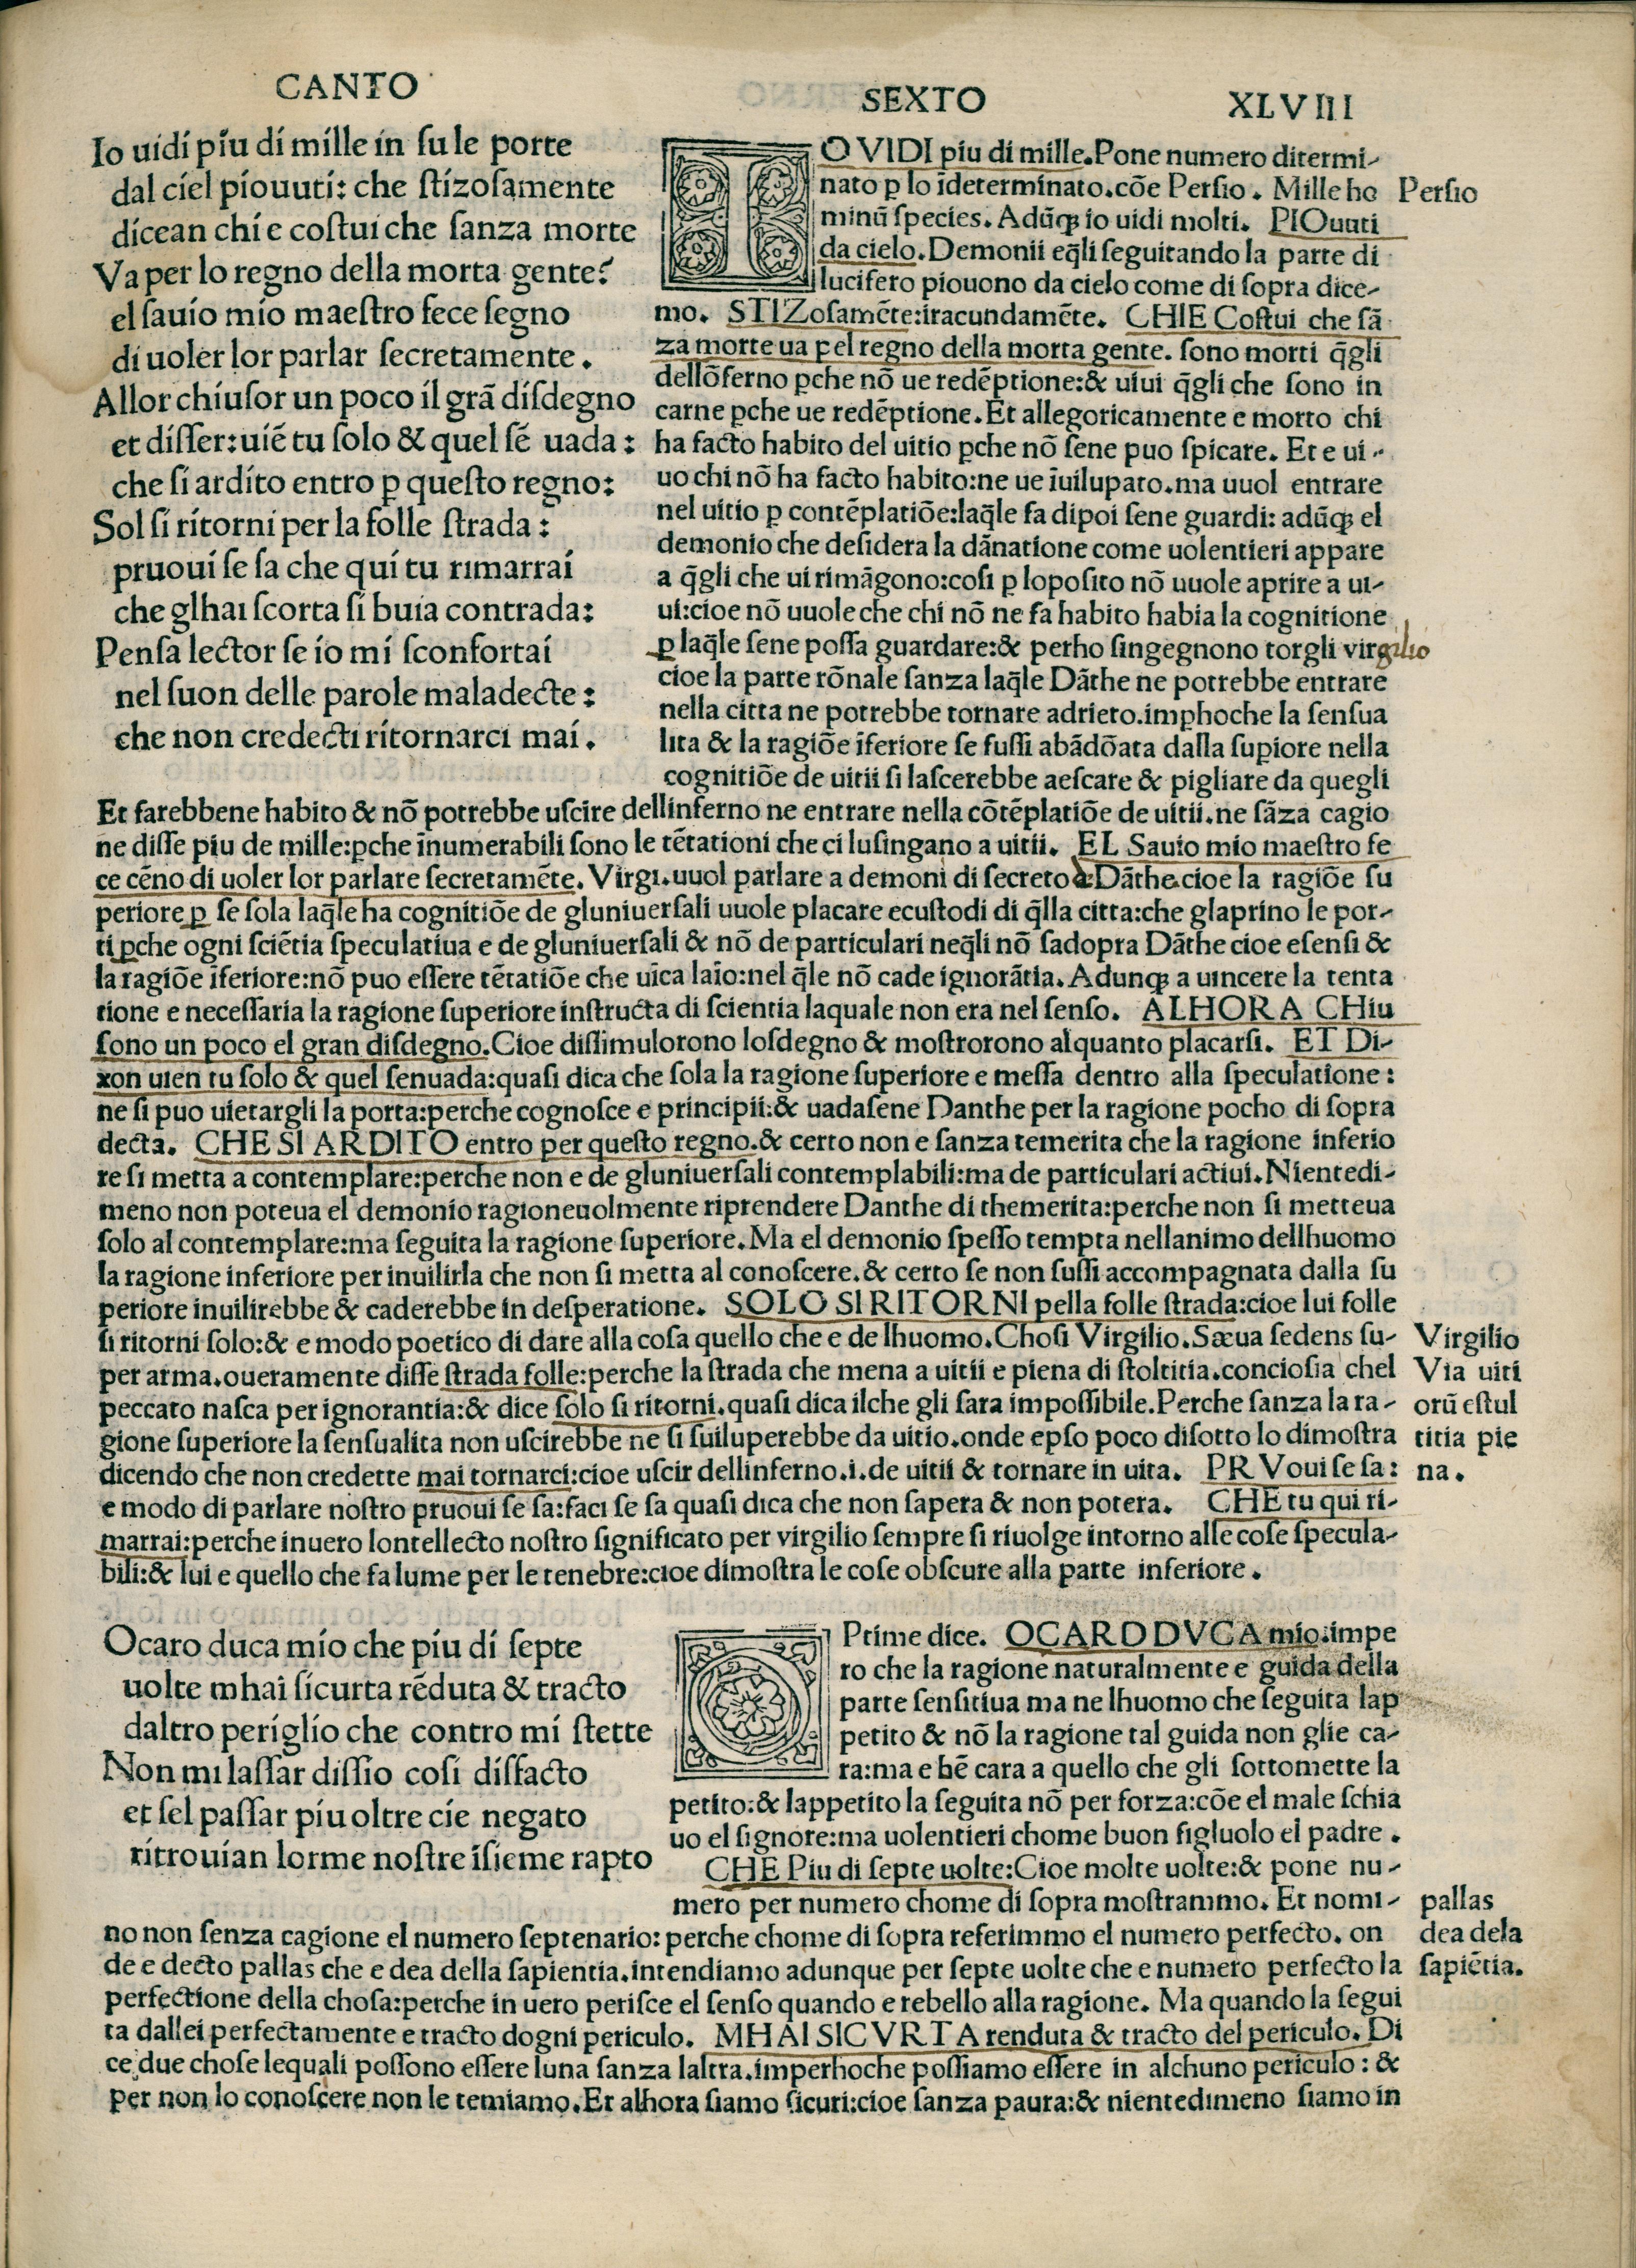 CANTO SEXTO XLVIII
Io uidi piu di mille in su le porte
dal ciel piouuti: che stizosamente
dicean chi e costui che sanza morte
Va per lo regno della morta gente?
el sauio mio maestro fece segno
di uoler lor parlar secretamente.
Allor chiusor un poco il grã disdegno
et disser: uiẽ tu solo & quel sẽ uada:
che si ardito entro ꝑ questo regno:
Sol si ritorni per la folle strada:
pruoui se sa che qui tu rimarrai
che glhai scorta si buia contrada:
Pensa lector se io mi sconfortai
nel suon delle parole maladecte:
che non credecti ritornarci mai.
IO VIDI piu di mille. Pone numero ditermi-
nato ꝑ lo ĩdeterminato. cõe Persio. Mille ho
minũ species. Adũqꝫ io uidi molti. PIOuuti
da cielo. Demonii eq̃li seguitando la parte di
lucifero piouono da cielo come di sopra dice-
mo. STIZosamẽte: iracundamẽte. CHIE Costui che sã
za morte ua ꝑel regno della morta gente. sono morti q̃gli
dellõferno ꝑche nõ ue redẽptione: & uiui q̃gli che sono in
carne ꝑche ue redẽptione. Et allegoricamente e morto chi
ha facto habito del uitio ꝑche nõ sene puo spicare. Et e ui-
uo chi nõ ha facto habito: ne ue ĩuilupato. ma uuol entrare
nel uitio ꝑ contẽplatiõe: laq̃le fa dipoi sene guardi: adũqꝫ el
demonio che desidera la dãnatione come uolentieri appare
a q̃gli che ui rimãgono: cosi ꝑ loposito nõ uuole aprire a ui-
ui: cioe nõ uuole che chi nõ ne fa habito habia la cognitione
ꝑ laq̃le sene possa guardare: & perho singegnono torgli virgilio
cioe la parte rõnale sanza laq̃le Dãthe ne potrebbe entrare
nella citta ne potrebbe tornare adrieto. imꝑhoche la sensua
lita & la ragiõe ĩferiore se fussi abãdõata dalla supiore nella
cognitiõe de uitii si lascerebbe aescare & pigliare da quegli
Persio
Et farebbene habito & nõ potrebbe uscire dellinferno ne entrare nella cõtẽplatiõe de uitii. ne sãza cagio
ne disse piu de mille: ꝑche ĩnumerabili sono le tẽtationi che ci lusingano a uitii. EL Sauio mio maestro fe
ce cẽno di uoler lor parlare secretamẽte. Virgi. uuol parlare a demoni di secreto a Dãthe. cioe la ragiõe su
periore ꝑ se sola laq̃le ha cognitiõe de gluniuersali uuole placare ecustodi di q̃lla citta: che glaprino le por-
ti ꝑche ogni sciẽtia speculatiua e de gluniuersali & nõ de particulari neq̃li nõ sadopra Dãthe cioe esensi &
la ragiõe ĩferiore: nõ puo essere tẽtatiõe che uĩca laĩo: nel q̃le nõ cade ignorãtia. Adunqꝫ a uincere la tenta
tione e necessaria la ragione superiore instructa di scientia laquale non era nel senso. ALHORA CHiu
sono un poco el gran disdegno. Cioe dissimulorono losdegno & mostrorono alquanto placarsi. ET Di-
xon uien tu solo & quel senuada: quasi dica che sola la ragione superiore e messa dentro alla speculatione:
ne si puo uietargli la porta: perche cognosce e principii: & uadasene Danthe per la ragione pocho di sopra
decta. CHE SI ARDITO entro per questo regno. & certo non e sanza temerita che la ragione inferio
re si metta a contemplare: perche non e de gluniuersali contemplabili: ma de particulari actiui. Nientedi-
meno non poteua el demonio ragioneuolmente riprendere Danthe di themerita: perche non si metteua
solo al contemplare: ma seguita la ragione superiore. Ma el demonio spesso tempta nellanimo dellhuomo
la ragione inferiore per inuilirla che non si metta al conoscere. & certo se non fussi accompagnata dalla su
periore inuilirebbe & caderebbe in desperatione. SOLO SI RITORNI pella folle strada: cioe lui folle
si ritorni solo: & e modo poetico di dare alla cosa quello che e de lhuomo. Chosi Virgilio. Sæua sedens su-
per arma. oueramente disse strada folle: perche la strada che mena a uitii e piena di stoltitia. conciosia chel
peccato nasca per ignorantia: & dice solo si ritorni. quasi dica ilche gli sara impossibile. Perche sanza la ra-
gione superiore la sensualita non uscirebbe ne si suiluperebbe da uitio. onde epso poco disotto lo dimostra
dicendo che non credette mai tornarci: cioe uscir dellinferno .i. de uitii & tornare in uita. PRVoui se sa:
e modo di parlare nostro pruoui se sa: faci se sa quasi dica che non sapera & non potera. CHE tu qui ri-
marrai: perche inuero lontellecto nostro significato per virgilio sempre si riuolge intorno alle cose specula-
bili: & lui e quello che fa lume per le tenebre: cioe dimostra le cose obscure alla parte inferiore.
Virgilio
Via uiti
orũ estul
titia pie
na.
Ocaro duca mio che piu di septe
uolte mhai sicurta rẽduta & tracto
daltro periglio che contro mi stette
Non mi lassar dissio cosi disfacto
et sel passar piu oltre cie negato
ritrouian lorme nostre ĩsieme rapto
OPtime dice. OCARO DVCA mio. impe
ro che la ragione naturalmente e guida della
parte sensitiua ma ne lhuomo che seguita lap
petito & nõ la ragione tal guida non glie ca-
ra: ma e bẽ cara a quello che gli sottomette la
petito: & lappetito la seguita nõ per forza: cõe el male schia
uo el signore: ma uolentieri chome buon figluolo el padre.
CHE Piu di septe uolte: Cioe molte uolte: & pone nu-
mero per numero chome di sopra mostrammo. Et nomi-
no non senza cagione el numero septenario: perche chome di sopra referimmo el numero perfecto. on
de e decto pallas che e dea della sapientia. intendiamo adunque per septe uolte che e numero perfecto la
perfectione della chosa: perche in uero perisce el senso quando e rebello alla ragione. Ma quando la segui
ta dallei perfectamente e tracto dogni periculo. MHAI SICVRTA renduta & tracto del periculo. Di
ce due chose lequali possono essere luna sanza laltra. imperhoche possiamo essere in alchuno periculo: &
per non lo conoscere non le temiamo. Et alhora siamo sicuri: cioe sanza paura: & nientedimeno siamo in
pallas
dea dela
sapiẽtia.